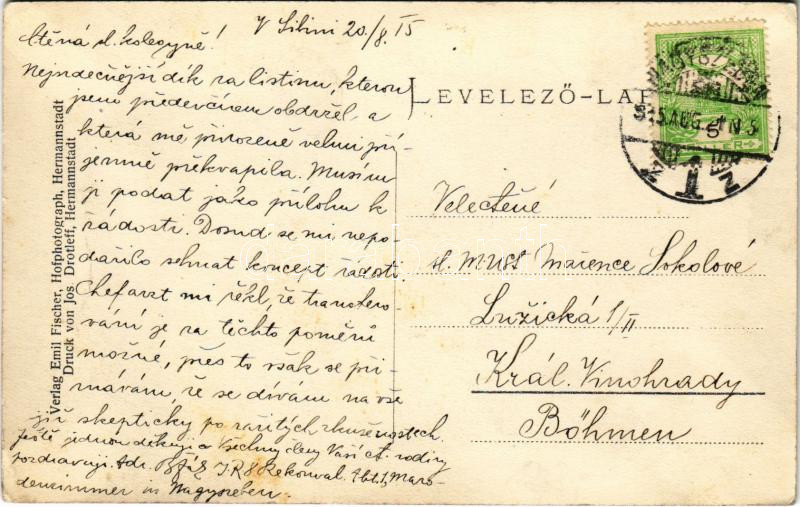 V Sibini 20/8 15
Ctěná sl. kolegyně!
Nejsrdečnější dík za listinu, kterou
jsem předevčírem obdržel, a
která mě přirozeně velmi pří-
jemně překvapila. Musím
ji podat jako přílohu k
žádosti. Dosud se mi nepo-
dařilo sehnat koncept žádosti.
Chefarzt mi řekl, že transfero-
vání je za těchto poměrů
možné, přes to však se při-
znávám, že se dívám na vše
již skepticky po zažitých zkušenostech.
Ještě jednou děkuji a všechny členy Vaší ct. rodiny
pozdravuji. Adr. I.R.8 Rekonval. Abt. 1, Maro-
denzimmer in Nagyszeben.
Verlag Emil Fischer, Hofphotograph, Hermannstadt
Druck von Jos. Drotleff, Hermannstadt
LEVELEZŐ-LAP
Velectěné
sl. MUC Mařence Sokolové
Lužická 1/II
Král. Vinohrady
Böhmen
NAGYSZEBEN
915 AUG 21 N 3
6
1